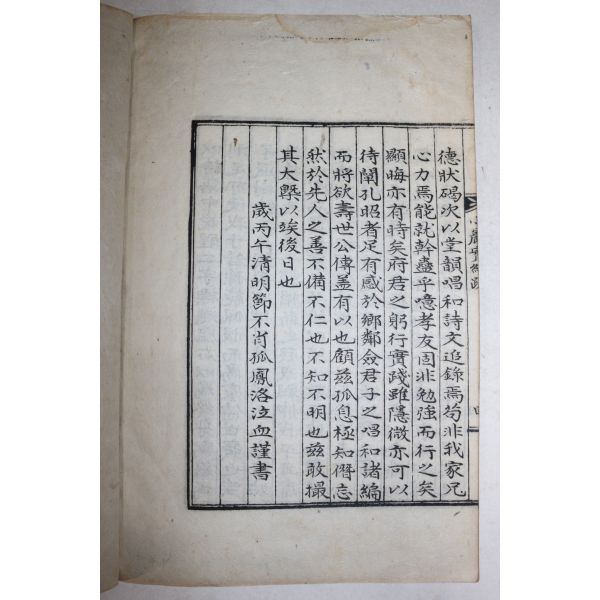 德狀碣次以堂韻唱和詩文追錄焉苟非我家兄
心力焉能就幹蠱乎噫孝友固非勉強而行之矣
顯晦亦有時矣府君之躬行實踐雖隱微亦可以
待闡孔昭者足有感於鄉鄰僉君子之唱和諸編
而將欲壽世公傳蓋有以也顧茲孤息極知僭忘
然於先人之善不備不仁也不知不明也茲敢撮
其大槩以竢後日也
歲丙午清明節不肖孤鳳洛泣血謹書